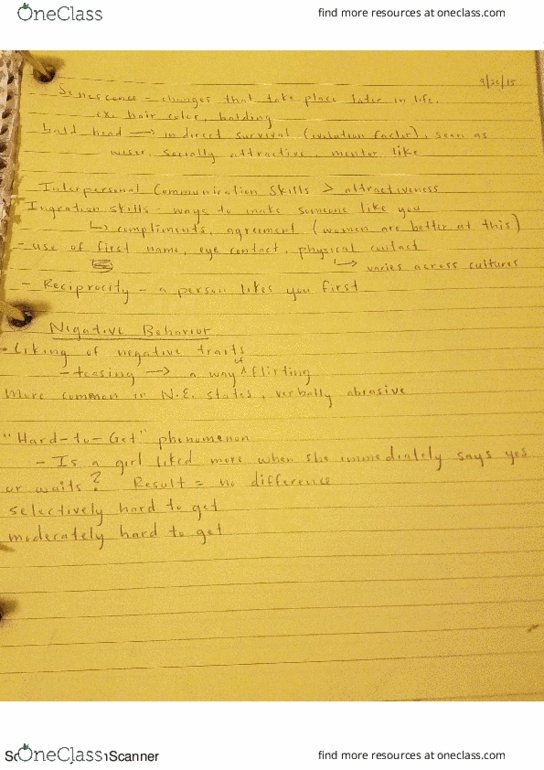 OneClass find more resources at oneclass.com
9/25/15
Senescence - changes that take place later in life.
ex: hair color, balding
bald head → indirect survival (evolution factor), seen as
wiser, socially attractive, mentor like
Interpersonal Communication Skills > attractiveness
Ingration skills - ways to make someone like you
↳ compliments, agreement (women are better at this)
- use of first name, eye contact, physical contact
↳ varies across cultures
- Reciprocity - a person likes you first
Negative Behavior
- liking of negative traits
- teasing → a way of flirting
More common in N.E. states, verbally abrasive
"Hard-to-Get" phenomenon
- Is a girl liked more when she immediately says yes
or waits? Result = no difference
selectively hard to get
moderately hard to get
OneClass Scanner find more resources at oneclass.com